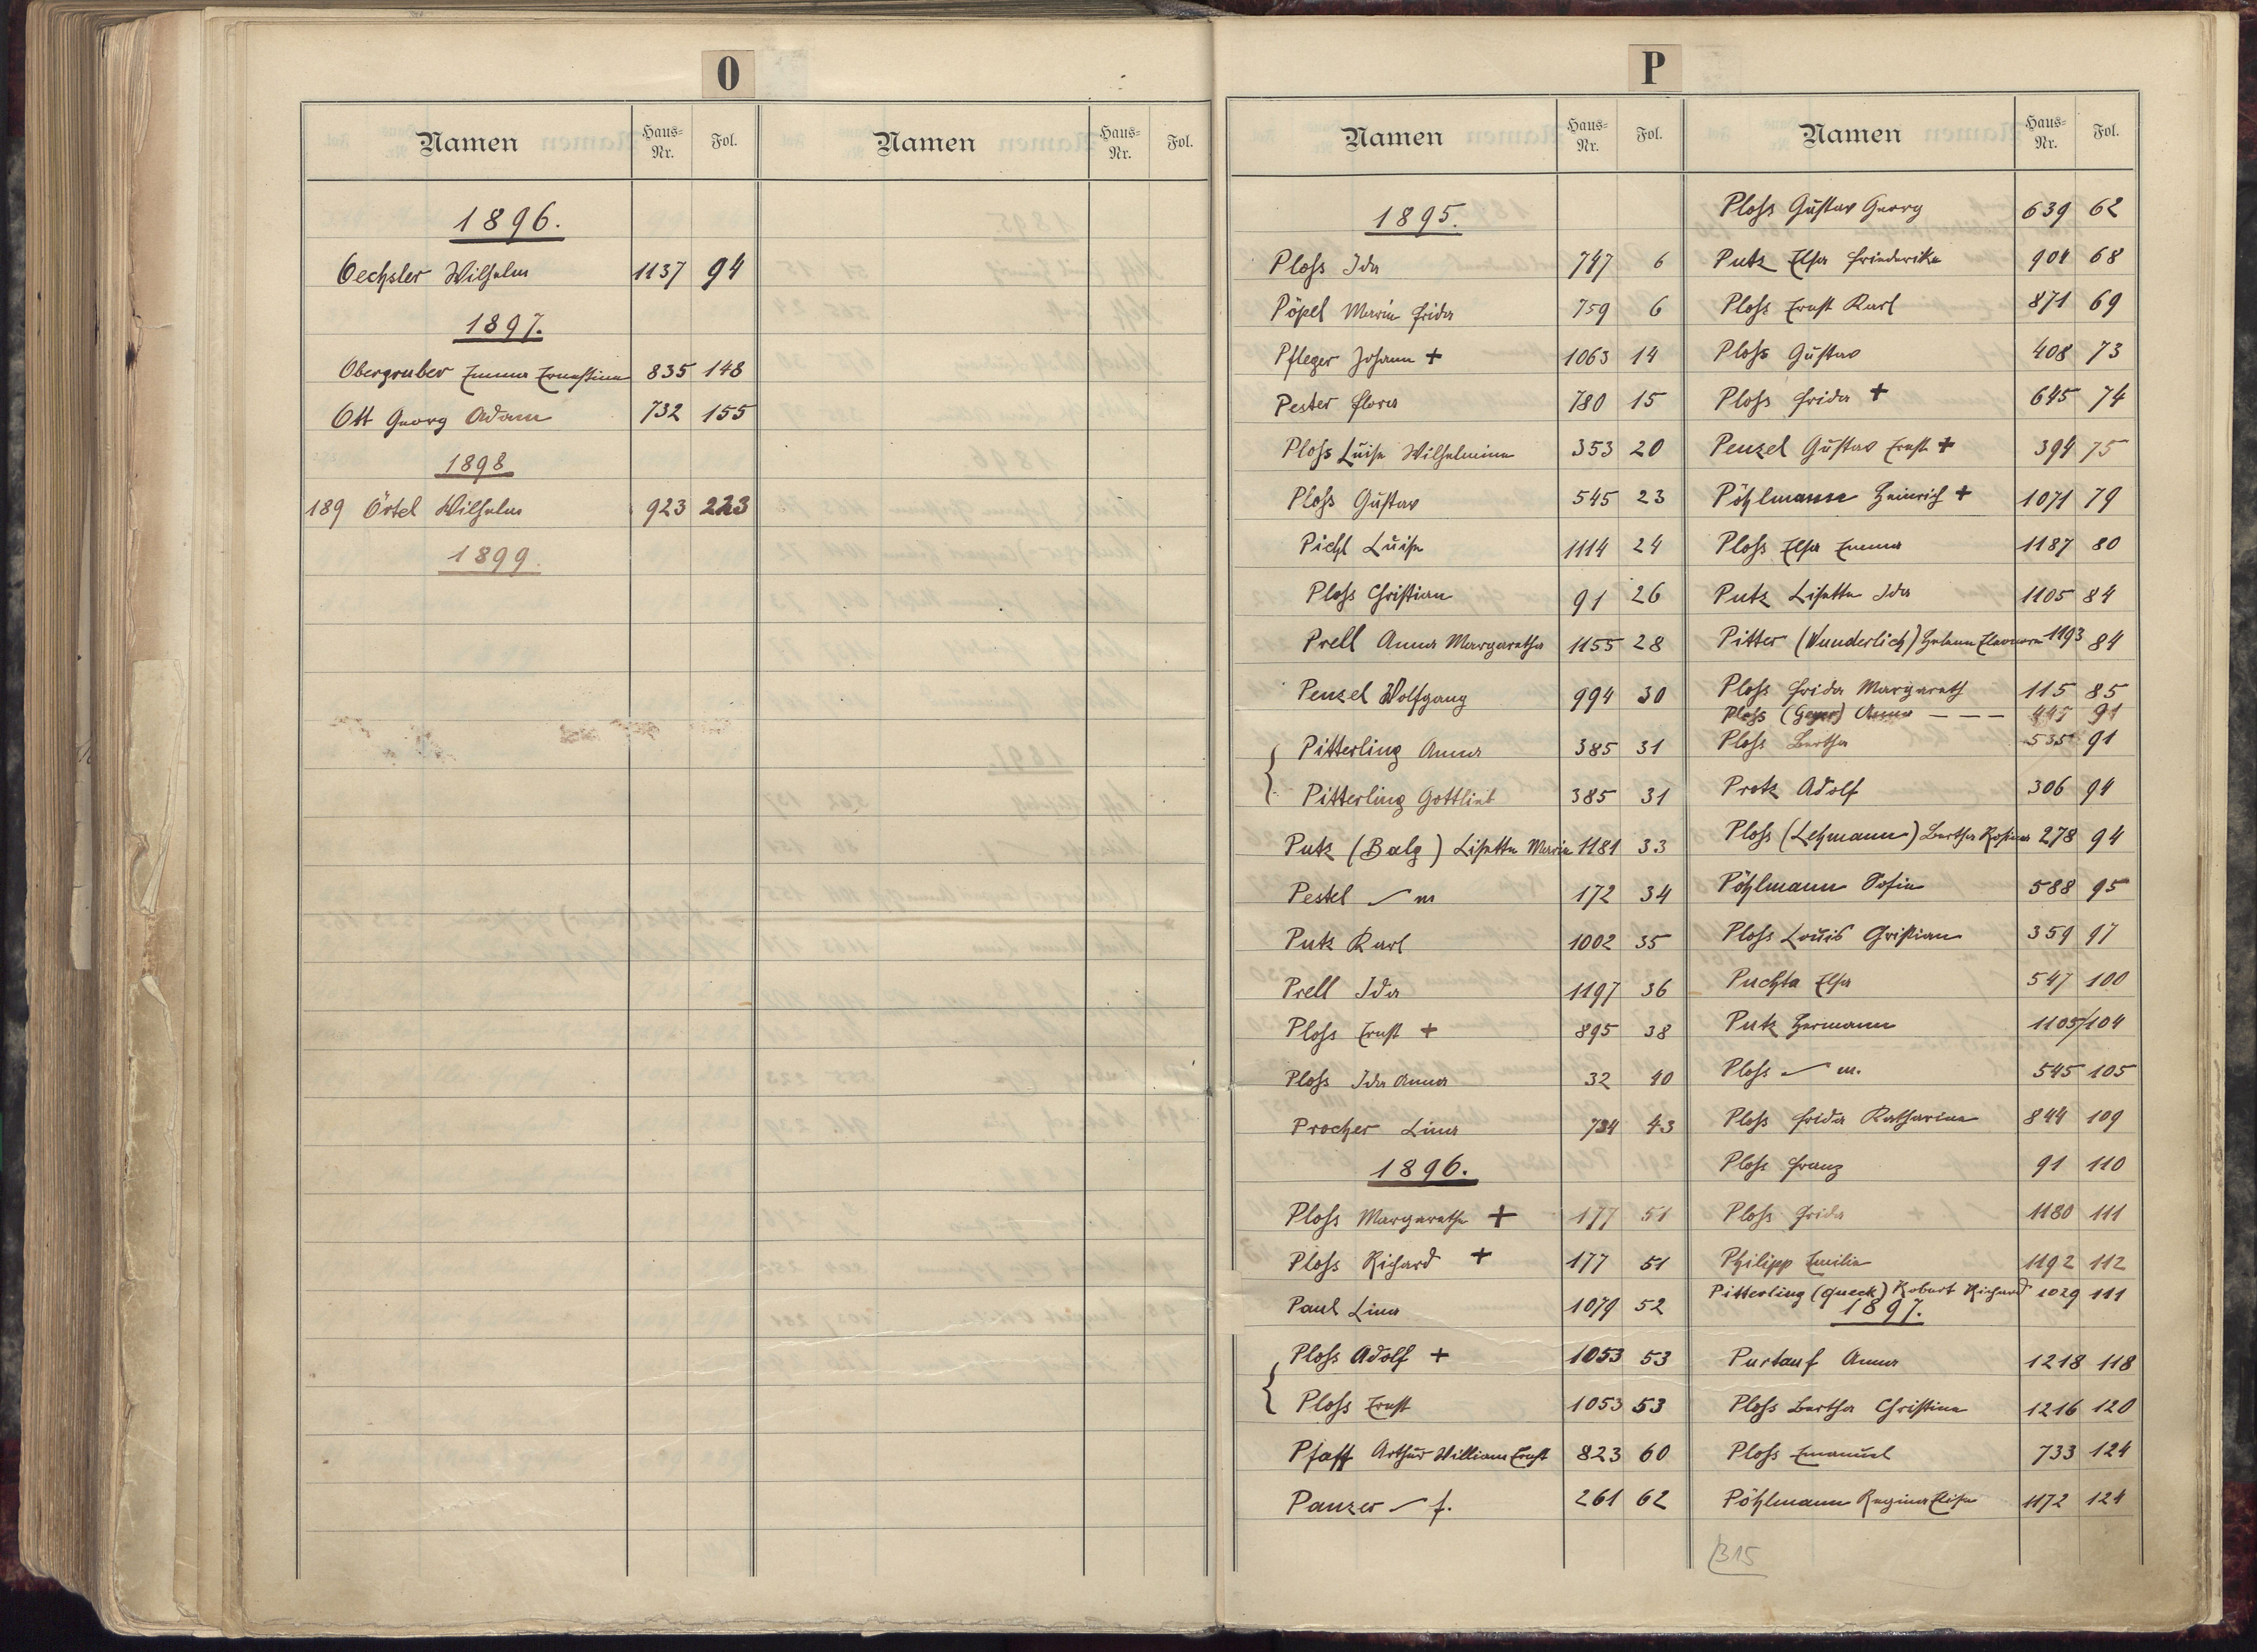 O
Namen Haus-Nr. Fol. Namen Haus-Nr. Fol.
1896.
Oechsler Wilhelm 1137 94
1897.
Obergruber Emma Ernestine 835 148
Ott Georg Adam 732 155
1898
189 Örtel Wilhelm 923 223
1899.
P
Namen Haus-Nr. Fol.
1895.
Ploss Ida 747 6
Pöpel Marie Frida 759 6
Pfleger Johann + 1063 14
Pester Flora 780 15
Ploss Luise Wilhelmine 353 20
Ploss Gustav 545 23
Pichl Luise 1114 24
Ploss Christian 91 26
Prell Anna Margaretha 1155 28
Penzel Wolfgang 994 30
Pitterling Anna 385 31
Pitterling Gottlieb 385 31
Putz (Balg) Lisette Marie 1181 33
Pestel m 172 34
Putz Karl 1002 35
Prell Ida 1197 36
Ploss Ernst + 895 38
Ploss Ida Anna 32 40
Procher Lina 734 43
1896.
Ploss Margarethe + 177 51
Ploss Richard + 177 51
Paul Lina 1079 52
Ploss Adolf + 1053 53
Ploss Ernst 1053 53
Pfaff Arthur William Ernst 823 60
Panzer f. 261 62
Namen Haus-Nr. Fol.
Ploss Gustav Georg 639 62
Putz Elsa Friederike 904 68
Ploss Ernst Karl 871 69
Ploss Gustav 408 73
Ploss Frida + 645 74
Penzel Gustav Ernst + 394 75
Pöhlmann Heinrich + 1071 79
Ploss Elsa Emma 1187 80
Putz Lisette Ida 1105 84
Pitter (Wunderlich) Helene Eleonore 1193 84
Ploss Frida Margareth 115 85
Ploss (Geyer) Anna — — — 445 91
Ploss Bertha 535 91
Protz Adolf 306 94
Ploss (Lehmann) Bertha Rosina 278 94
Pöhlmann Sofie 588 95
Ploss Louis Christian 359 97
Puchta Elsa 547 100
Putz Hermann 1105/104
Ploss m. 545 105
Ploss Frida Katharina 844 109
Ploss Franz 91 110
Ploss Frida 1180 111
Philipp Emilie 1192 112
Pitterling (Queck) Robert Richard 1029 111
1897.
Purtauf Anna 1218 118
Ploss Bertha Christine 1216 120
Ploss Emanuel 733 124
Pöhlmann Regina Elise 1172 124
315